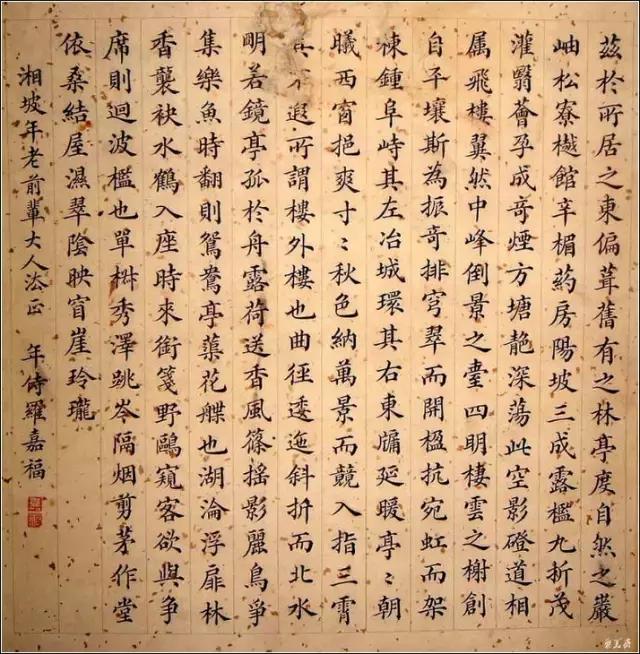 茲於所居之東偏葺舊有之林亭度自然之巖
岫松寮樾館辛楣药房陽坡三成露檻九折茂
灌翳薈孕成奇煙方塘艳深蕩此空影磴道相
属飛樓翼然中峰倒景之臺四明棲雲之榭創
自平壤斯為振奇排穹翠而開楹抗宛虹而架
棟鍾阜峙其左冶城環其右東牖延暖亭〻朝
曦西窗挹爽寸〻秋色納萬景而競入指三霄
其不遐所謂樓外樓也曲徑逶迤斜折而北水
明若鏡亭孤於舟露荷送香風篠摇影麗鳥爭
集樂魚時翻則鴛鴦亭蕖花艓也湖淪浮扉林
香襲袂水鶴入座時來銜箋野鷗窺客欲與爭
席則迴波檻也單椒秀澤跳岑隔烟剪茅作堂
依桑結屋濕翠陰映窅崖玲瓏
湘坡年老前輩大人法正 年侍羅嘉福